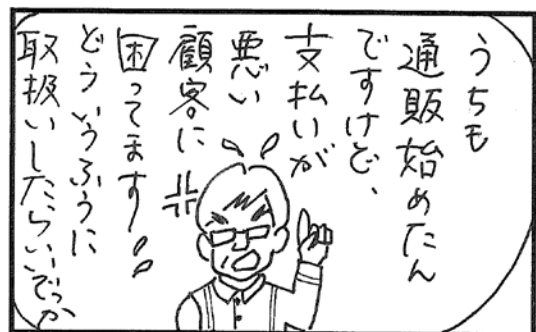 うちも
通販始めたん
ですけど、
支払いが
悪い
顧客に
困ってます!!
どういうふうに
取扱いしたらいいでっか